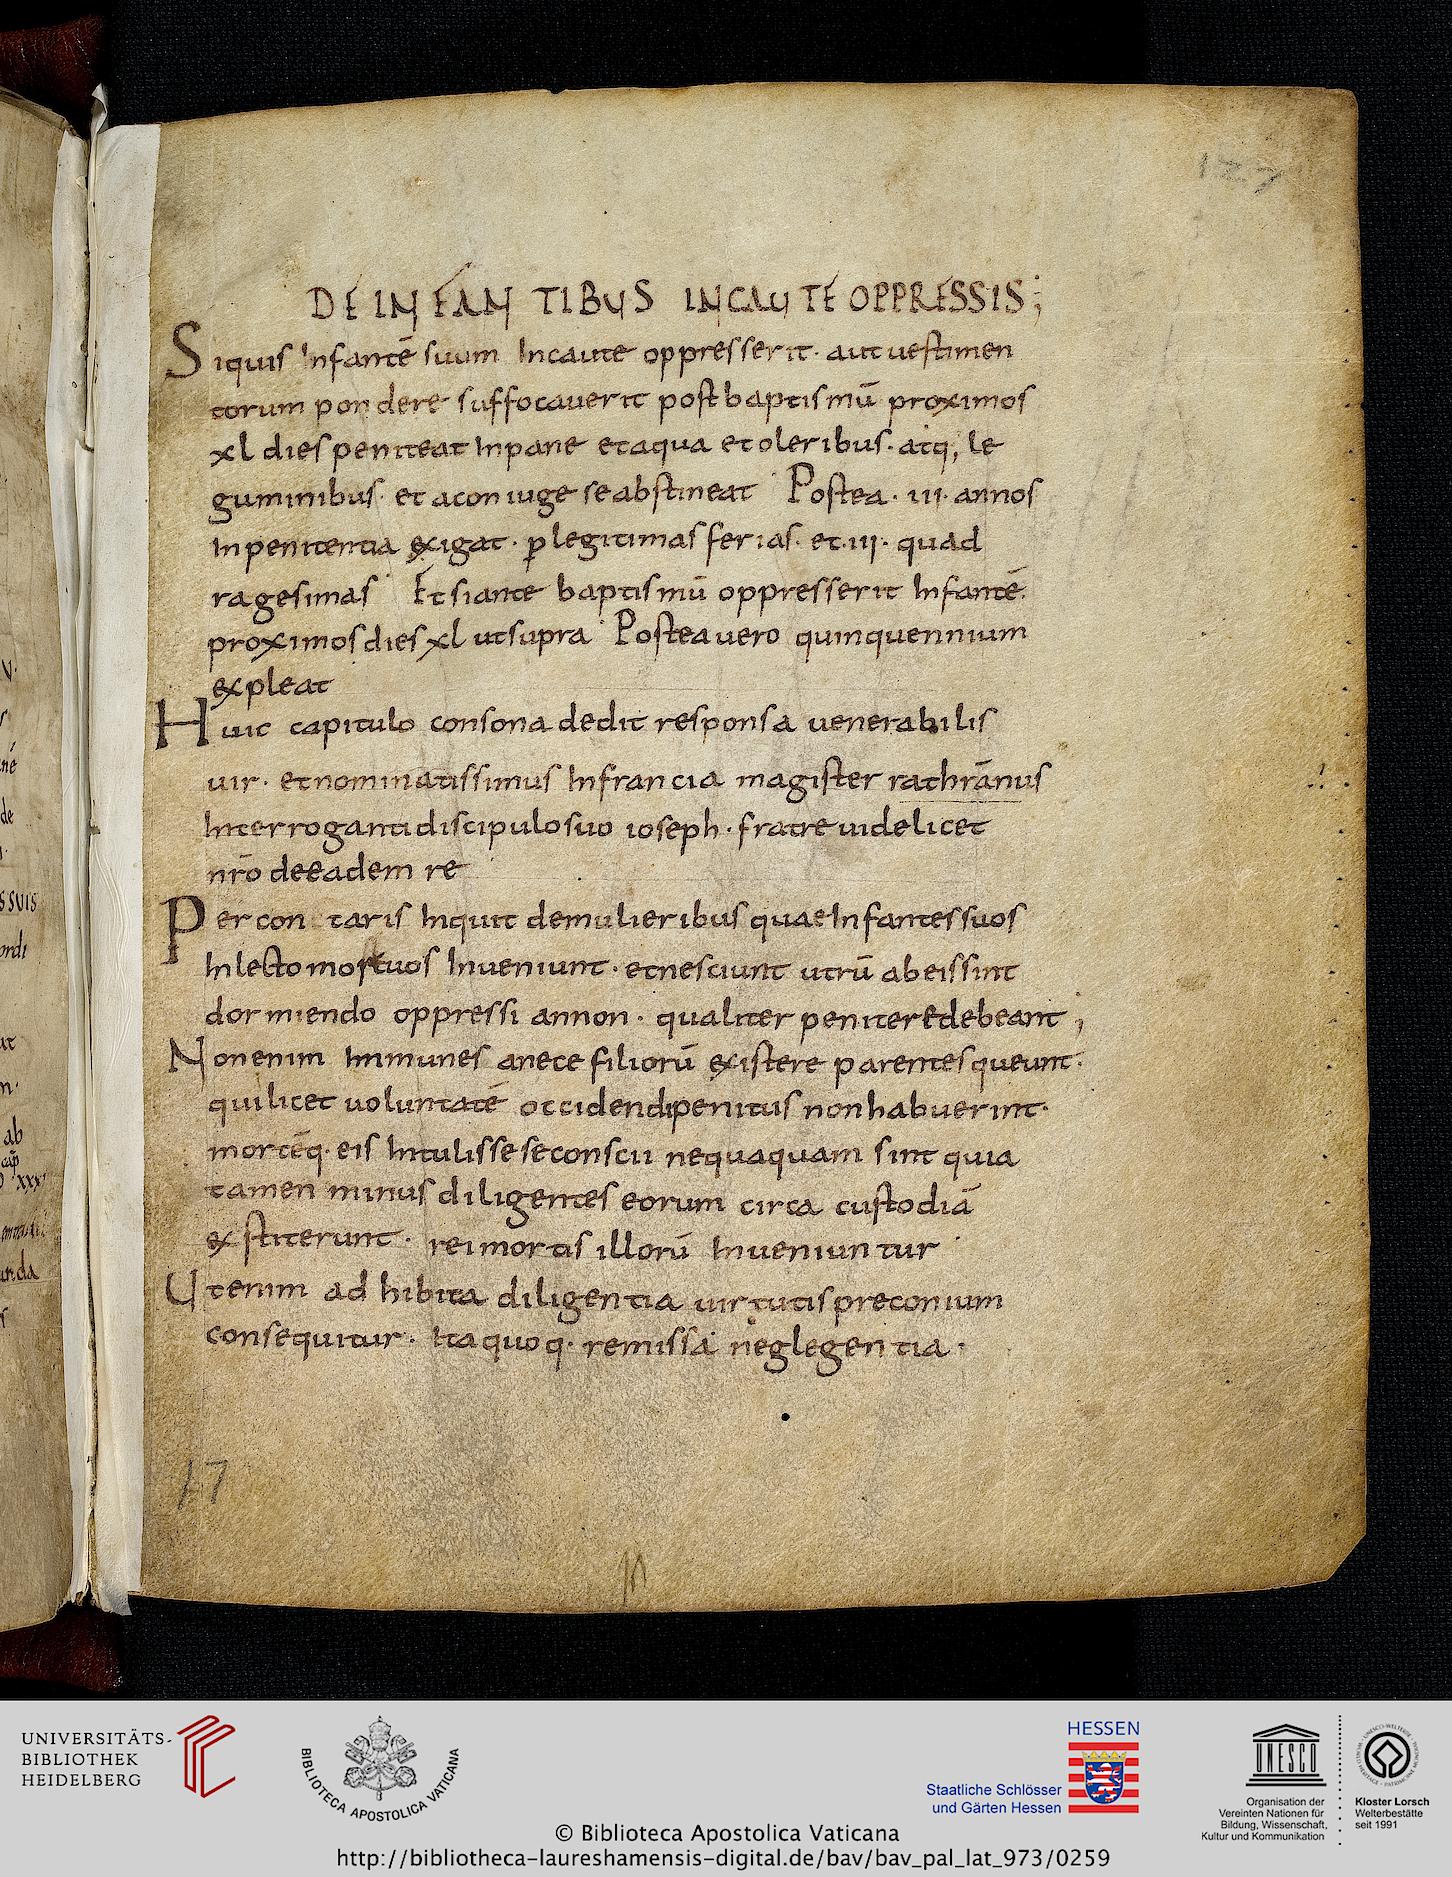 127
DE INFANTIBUS INCAUTE OPPRESSIS;
Siquis Infantē suum Incaute oppresserit· aut uestimen
torum pondere suffocauerit post baptismū proximos
xl dies peniteat Inpane et aqua et oleribus· atq, le
guminibus· et a coniuge se abstineat Postea· III· annos
Inpenitentia exigat· ꝑ legitimas ferias· et·III· quad
ragesimas Et si ante baptismū oppresserit Infantē·
proximos dies xl ut supra Postea uero quinquennium
expleat
Huic capitulo consona dedit responsa uenerabilis
uir· et nominatissimus Infrancia magister rathrānus
Interroganti discipulo suo ioseph· fratre uidelicet
nr̄o de eadem re
Percontaris Inquit de mulieribus quae Infantes suos
Inlecto mortuos Inueniunt· et nesciunt utrū ab eis sint
dormiendo oppressi annon· qualiter penitere debeant;
Non enim Immunes a nece filiorū existere parentes queunt·
qui licet uoluntatē occidendi penitus non habuerint·
mortēq· eis Intulisse se conscii nequaquam sint quia
tamen minus diligentes eorum circa custodiā
exstiterunt· rei mortis illorū Inueniuntur
Ut enim adhibita diligentia uirtutis preconium
consequitur· Ita quoq· remissa neglegentia·
17
UNIVERSITÄTS-
BIBLIOTHEK
HEIDELBERG
BIBLIOTECA APOSTOLICA VATICANA
HESSEN
Staatliche Schlösser
und Gärten Hessen
UNESCO
Organisation der
Vereinten Nationen für
Bildung, Wissenschaft,
Kultur und Kommunikation
Kloster Lorsch
Welterbestätte
seit 1991
© Biblioteca Apostolica Vaticana
http://bibliotheca-laureshamensis-digital.de/bav/bav_pal_lat_973/0259